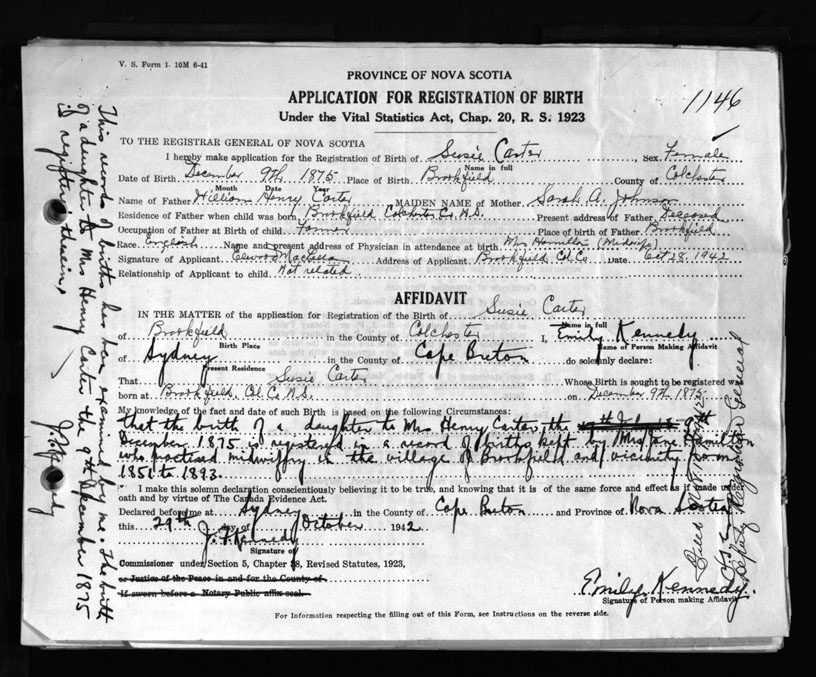 V. S. Form 1. 10M 6-41
PROVINCE OF NOVA SCOTIA
APPLICATION FOR REGISTRATION OF BIRTH
1146
Under the Vital Statistics Act, Chap. 20, R. S. 1923
TO THE REGISTRAR GENERAL OF NOVA SCOTIA
I hereby make application for the Registration of Birth of Susie Carter, Sex Female
Name in full
Date of Birth December 9th 1875 Place of Birth Brookfield County of Colchester
Month Date Year
Name of Father William Henry Carter MAIDEN NAME of Mother Sarah A. Johnson
Residence of Father when child was born Brookfield Colchester Co. N.S. Present address of Father Deceased
Occupation of Father at Birth of child Farmer Place of birth of Father Brookfield
Race English Name and present address of Physician in attendance at birth Mrs Hamilton (Midwife)
Signature of Applicant Elwood Address of Applicant Brookfield Col. Co. Date Oct 28, 1942
Relationship of Applicant to child Not related
AFFIDAVIT
IN THE MATTER of the application for Registration of the Birth of Susie Carter
Name in full
of Brookfield in the County of Colchester I, Emily Kennedy
Birth Place Name of Person Making Affidavit
of Sydney in the County of Cape Breton do solemnly declare:
Present Residence
That Susie Carter Whose Birth is sought to be registered was
born at Brookfield, Col. Co. N.S. on December 9th 1875
My knowledge of the fact and date of such Birth is based on the following Circumstances:
that the birth of a daughter to Mrs Henry Carter, the 9th
December 1875 is registered in a record of births kept by Mrs Jane Hamilton
who practised midwifry in the village of Brookfield and vicinity from
1851 to 1893.
I make this solemn declaration conscientiously believing it to be true, and knowing that it is of the same force and effect as if made under
oath and by virtue of The Canada Evidence Act.
Declared before me at Sydney in the County of Cape Breton and Province of Nova Scotia
this 29th day of October 1942
J. F. Kennedy
Signature of
Commissioner under Section 5, Chapter 38, Revised Statutes, 1923,
or Justice of the Peace in and for the County of
If sworn before a Notary Public affix seal.
Emily Kennedy.
Signature of Person making Affidavit
For Information respecting the filling out of this Form, see Instructions on the reverse side.
This record of births has been examined by me. The birth
of a daughter to Mrs Henry Carter the 9th December 1875
is registered therein.
Deputy Registrar General